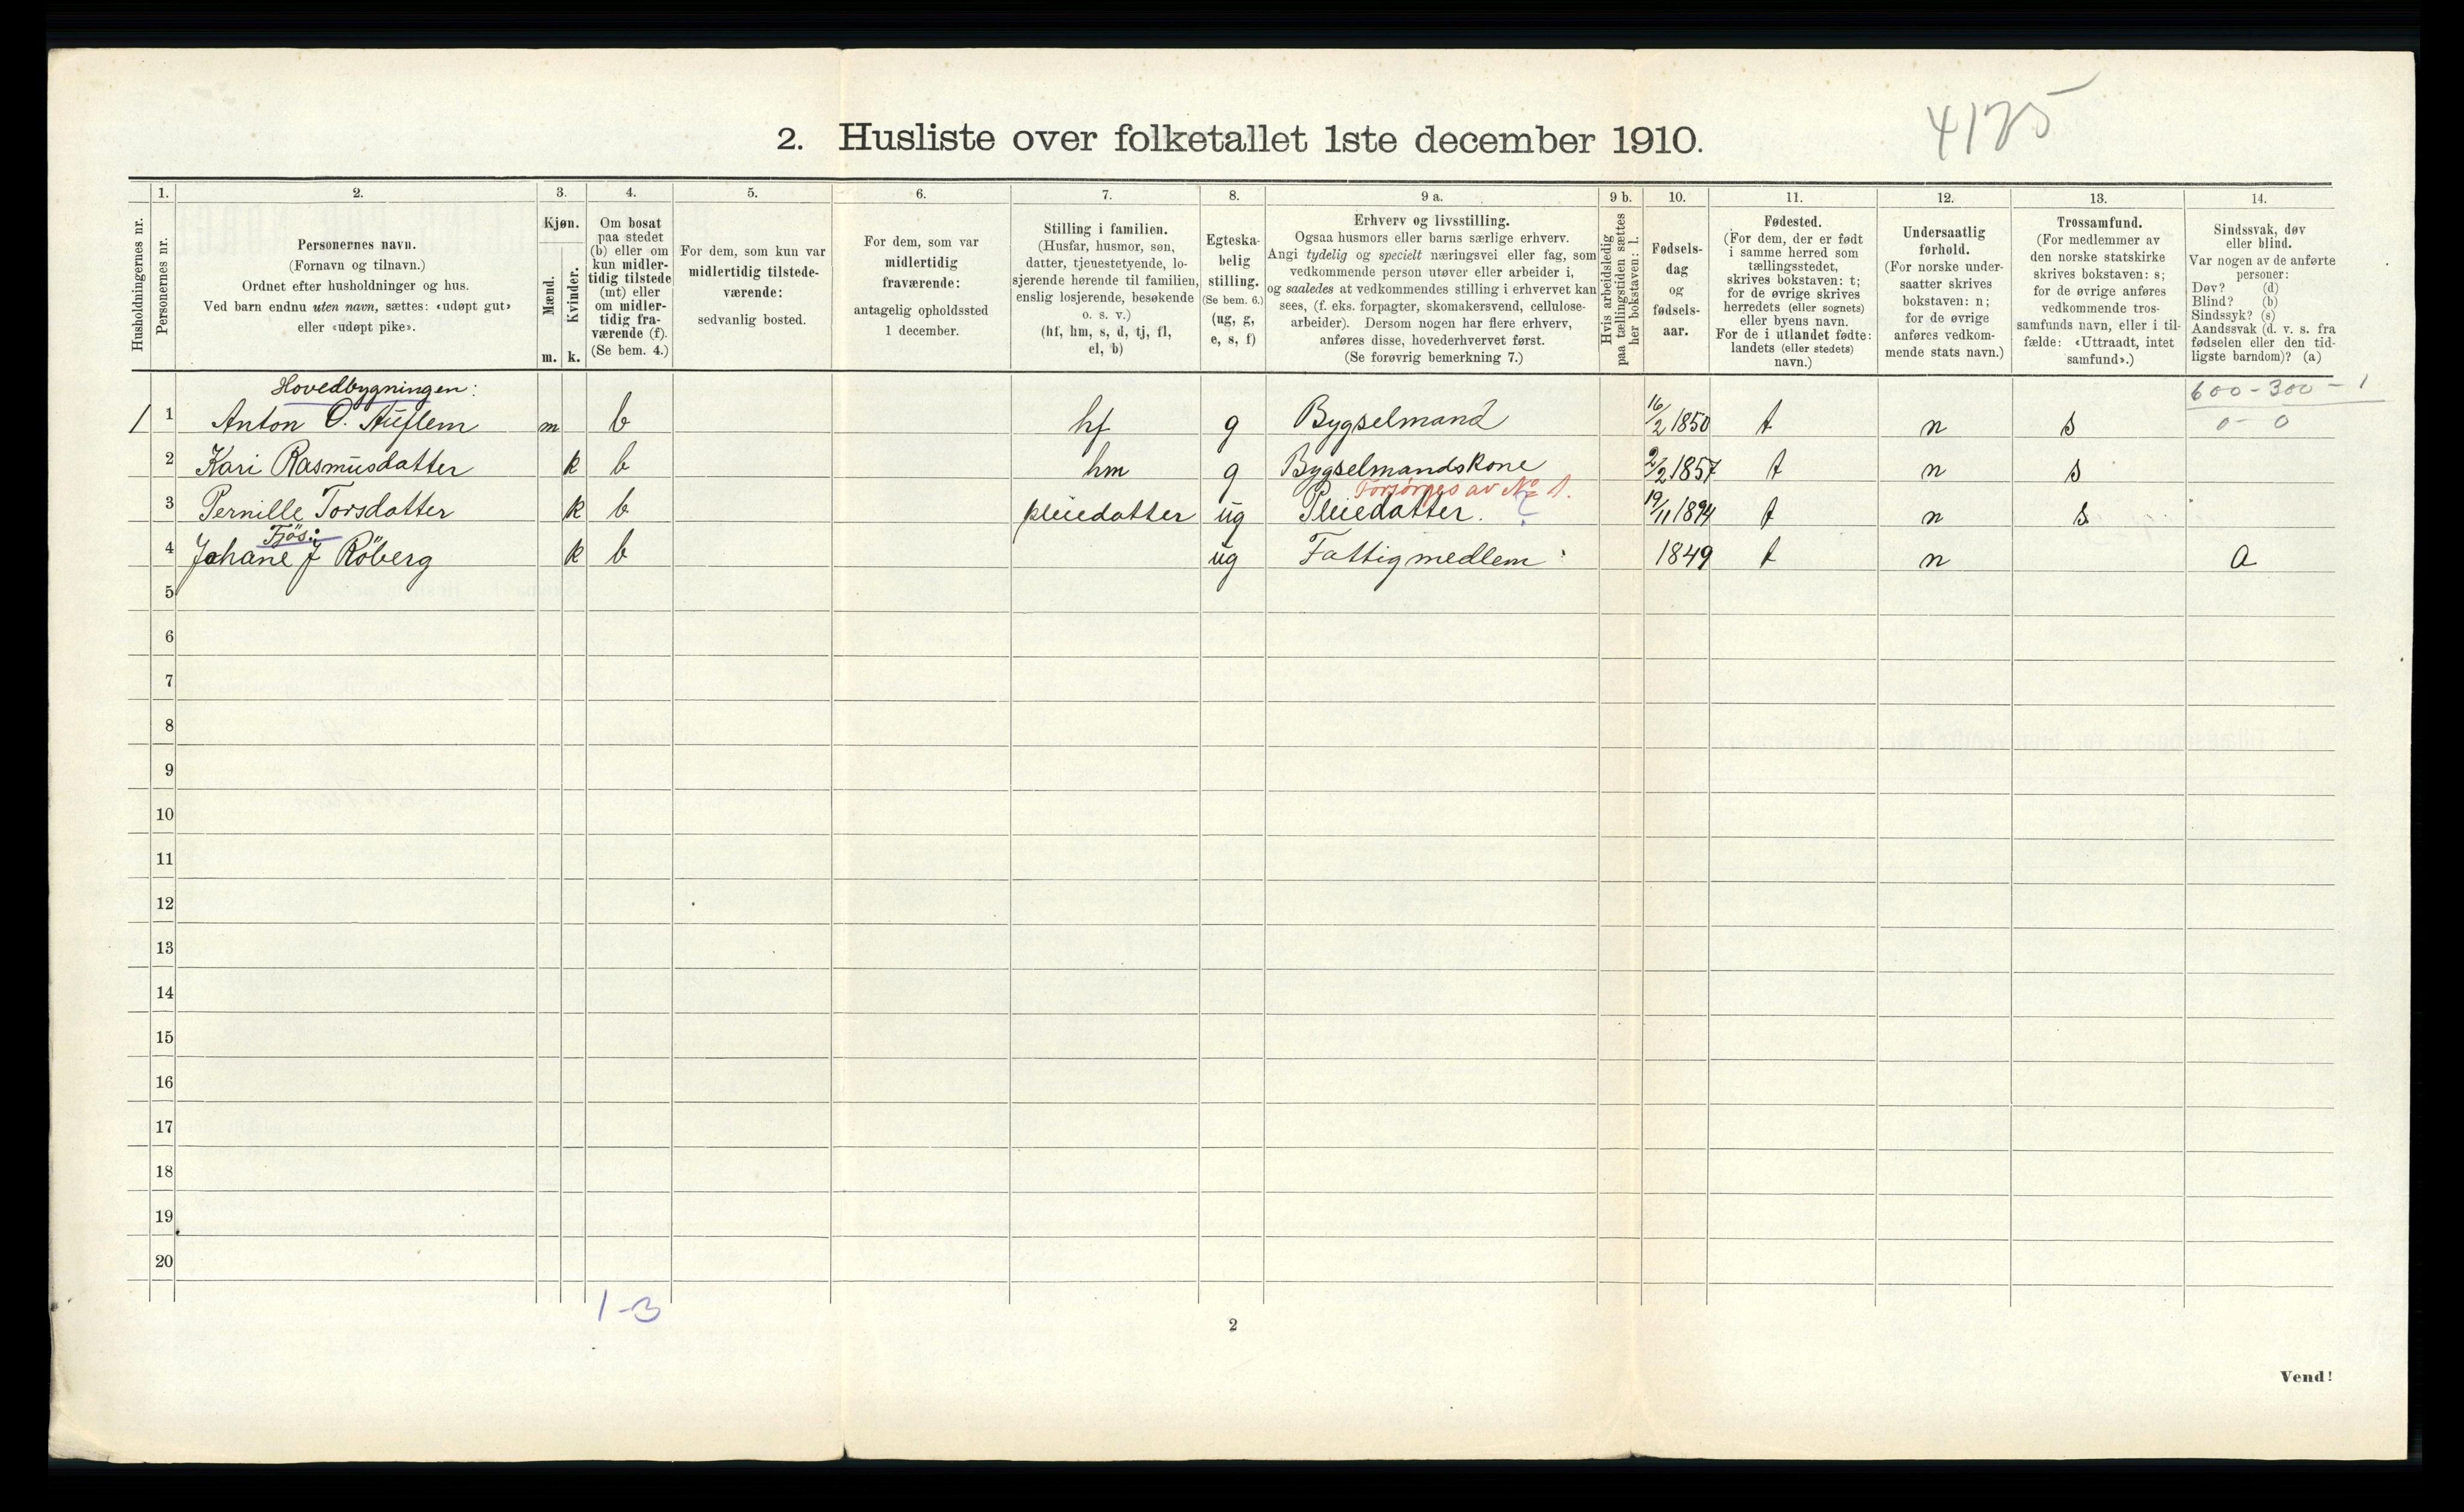 4175
2. Husliste over folketallet 1ste december 1910.
1. 2. 3. 4. 5. 6. 7. 8. 9 a. 9 b. 10. 11. 12. 13. 14.
Husholdningernes nr.
Personernes nr.
Personernes navn.
(Fornavn og tilnavn.)
Ordnet efter husholdninger og hus.
Ved barn endnu uten navn, sættes: «udøpt gut»
eller «udøpt pike».
Kjøn.
Mænd.
Kvinder.
m. k.
Om bosat
paa stedet
(b) eller om
kun midler-
tidig tilstede
(mt) eller
om midler-
tidig fra-
værende (f).
(Se bem. 4.)
For dem, som kun var
midlertidig tilstede-
værende:
sedvanlig bosted.
For dem, som var
midlertidig
fraværende:
antagelig opholdssted
1 december.
Stilling i familien.
(Husfar, husmor, søn,
datter, tjenestetyende, lo-
sjerende hørende til familien,
enslig losjerende, besøkende
o. s. v.)
(hf, hm, s, d, tj, fl,
el, b)
Egteska-
belig
stilling.
(Se bem. 6.)
(ug, g,
e, s, f)
Erhverv og livsstilling.
Ogsaa husmors eller barns særlige erhverv.
Angi tydelig og specielt næringsvei eller fag, som
vedkommende person utøver eller arbeider i,
og saaledes at vedkommendes stilling i erhvervet kan
sees, (f. eks. forpagter, skomakersvend, cellulose-
arbeider). Dersom nogen har flere erhverv,
anføres disse, hovederhvervet først.
(Se forøvrig bemerkning 7.)
Hvis arbeidsledig
paa tællingstiden sættes
her bokstaven: l.
Fødsels-
dag
og
fødsels-
aar.
Fødested.
(For dem, der er født
i samme herred som
tællingsstedet,
skrives bokstaven: t;
for de øvrige skrives
herredets (eller sognets)
eller byens navn.
For de i utlandet fødte:
landets (eller stedets)
navn.)
Undersaatlig
forhold.
(For norske under-
saatter skrives
bokstaven: n;
for de øvrige
anføres vedkom-
mende stats navn.)
Trossamfund.
(For medlemmer av
den norske statskirke
skrives bokstaven: s;
for de øvrige anføres
vedkommende tros-
samfunds navn, eller i til-
fælde: «Uttraadt, intet
samfund».)
Sindssvak, døv
eller blind.
Var nogen av de anførte
personer:
Døv? (d)
Blind? (b)
Sindssyk? (s)
Aandssvak (d. v. s. fra
fødselen eller den tid-
ligste barndom)? (a)
Hovedbygningen: 600-300-1
1 1 Anton O. Auflem m b hf g Bygselmand 16/2 1850 t n s 0-0
2 Kari Rasmusdatter k b hm g Bygselmandskone 2/2 1857 t n s
Forsørges av No 1.
3 Pernille Torsdatter k b pleiedatter ug Pleiedatter. ? 19/11 1894 t n s
Fjøs:
4 Johane J Röberg k b ug Fattigmedlem 1849 t n a
5
6
7
8
9
10
11
12
13
14
15
16
17
18
19
20
1-3
2
Vend!